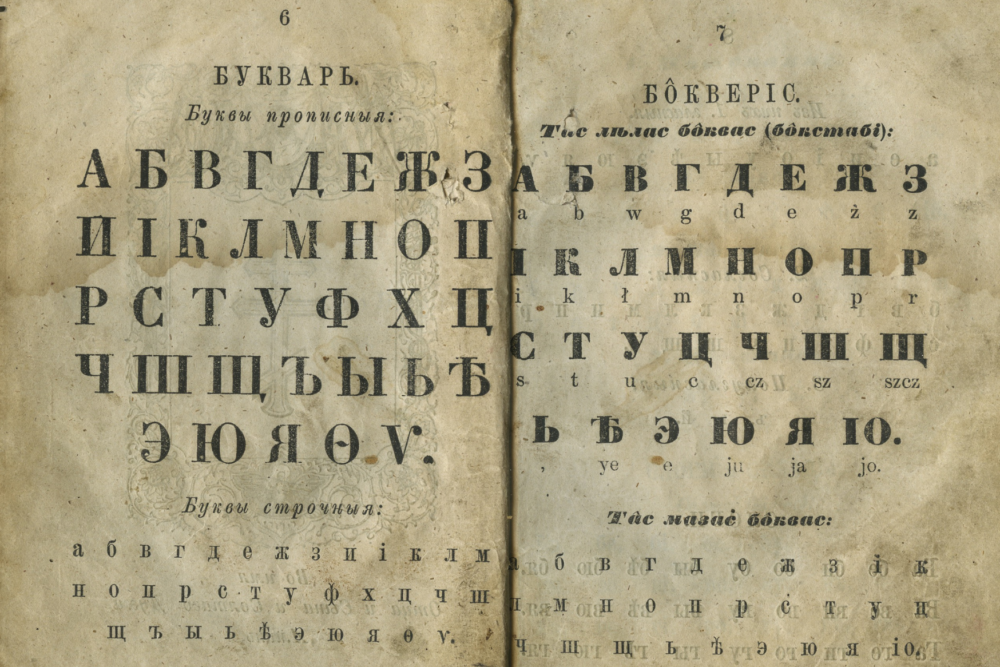 6
БУКВАРЬ.
Буквы прописныя:
А Б В Г Д Е Ж З
И І К Л М Н О П
Р С Т У Ф Х Ц
Ч Ш Щ Ъ Ы Ь Ѣ
Э Ю Я Ѳ Ѵ.
Буквы строчныя:
а б в г д е ж з и і к л м
н о п р с т у ф х ц ч ш
щ ъ ы ь ѣ э ю я ѳ ѵ.
7
БО̂КВЕРІС.
Тас лѣлас бо̂квас (бо̂кстабі):
А Б В Г Д Е Ж З
a b w g d e ż z
І К Л М Н О П Р
i k ł m n o p r
С Т У Ц Ч Ш Щ
s t u c cz sz szcz
Ь Ѣ Э Ю Я ІО.
, ye e ju ja jo.
Та̂с мазас̇ бо̂квас:
а б в г д е ж з і к
л м н о п р с т у ц
ч ш щ ь ѣ э ю я іо.